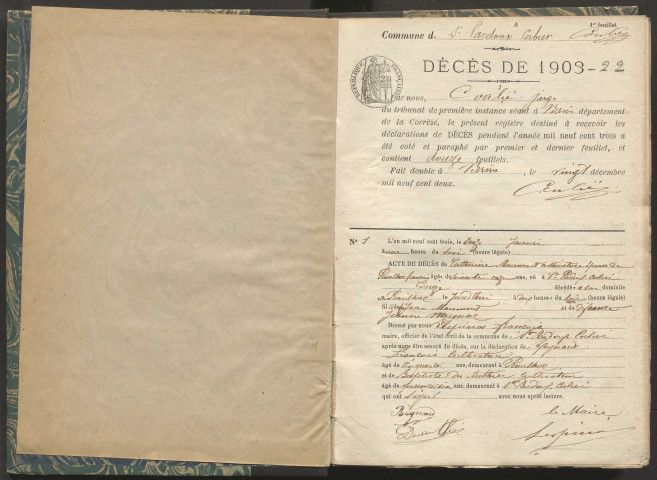 1er feuillet
Commune d. St Pardoux Corbier
DÉCÈS DE 1903-22
RÉPUBLIQUE FRANÇAISE
Par nous, juge
du tribunal de première instance séant à département
de la Corrèze, le présent registre destiné à recevoir les
déclarations de DÉCÈS pendant l'année mil neuf cent trois a
été coté et paraphé par premier et dernier feuillet, et
contient douze feuillets.
Fait double à , le vingt décembre
mil neuf cent deux.
No 1 L'an mil neuf cent trois, le onze Janvier
à une heure du soir (heure légale)
ACTE DE DÉCÈS de Catherine
âgée de soixante onze ans, né à St Pardoux Corbier
Corrèze décédée à son domicile
à le heure du soir (heure légale)
fil de Jean et de défunte
Jeanne
Dressé par nous Lespinas françois
maire, officier de l'état civil de la commune de St Pardoux Corbier
après nous être assuré du décès, sur la déclaration de
François cultivateur
âgé de cinquante ans, demeurant à
et de Baptiste cultivateur
âgé de ans, demeurant à St Pardoux Corbier
qui ont signé avec nous après lecture.
le Maire,
Lespinas